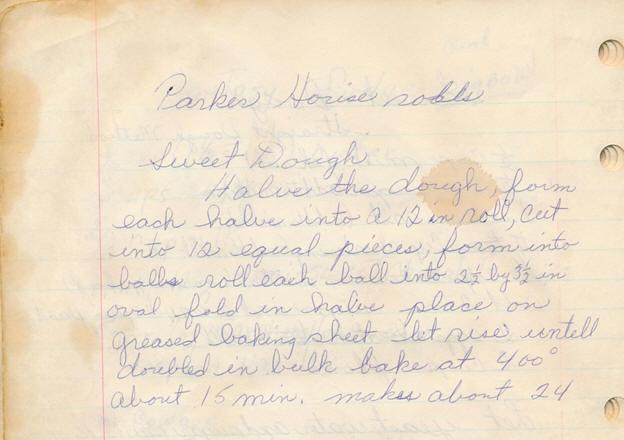 Parker House rolls
Sweet Dough
Halve the dough, form
each halve into a 12 in roll, cut
into 12 equal pieces, form into
balls roll each ball into 2½ by 3½ in
oval fold in halve place on
greased baking sheet let rise untell
doubled in bulk bake at 400°
about 15 min. makes about 24